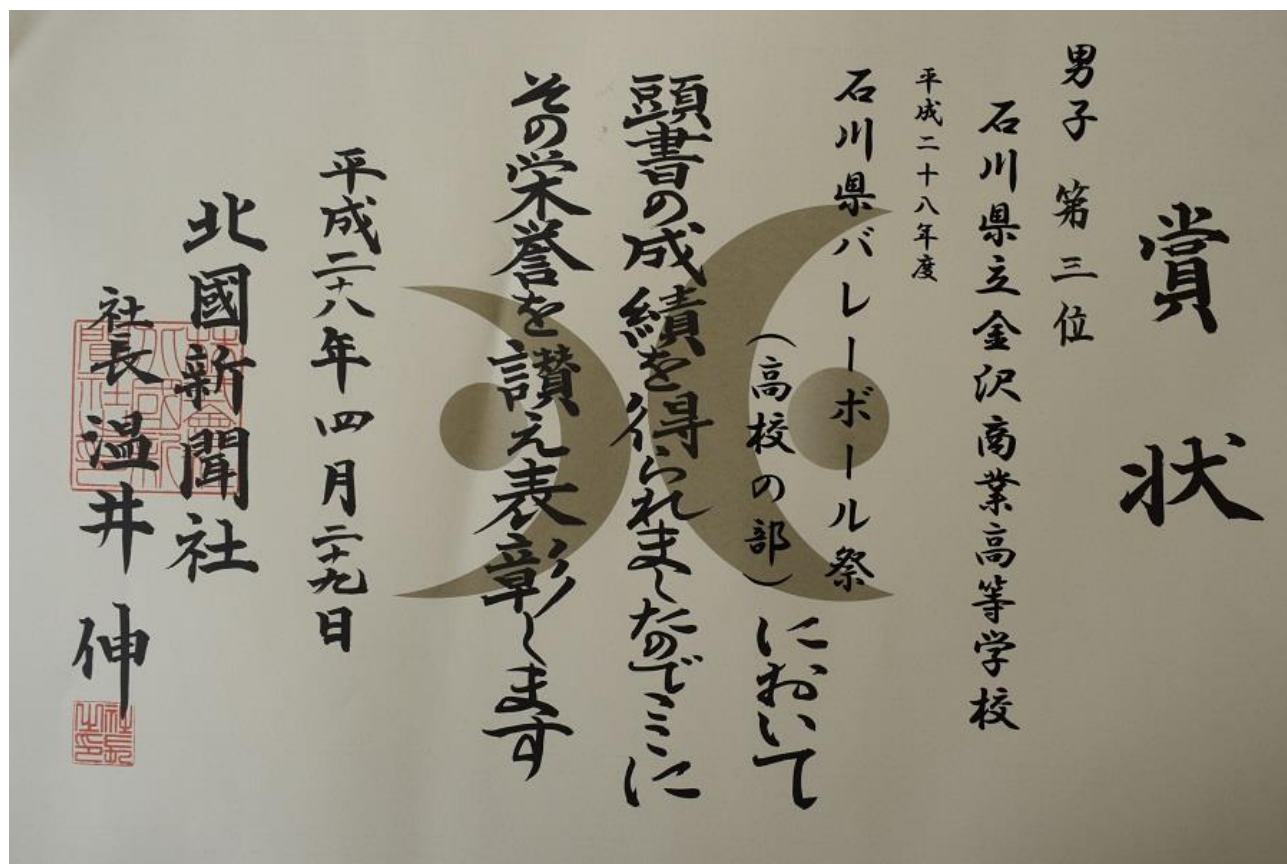 賞状
男子 第三位
石川県立金沢商業高等学校
平成二十八年度
石川県バレーボール祭
(高校の部)において
頭書の成績を得られましたのでここに
その栄誉を讃え表彰します
平成二十八年四月二十九日
北國新聞社
社長 温井 伸
社長之印